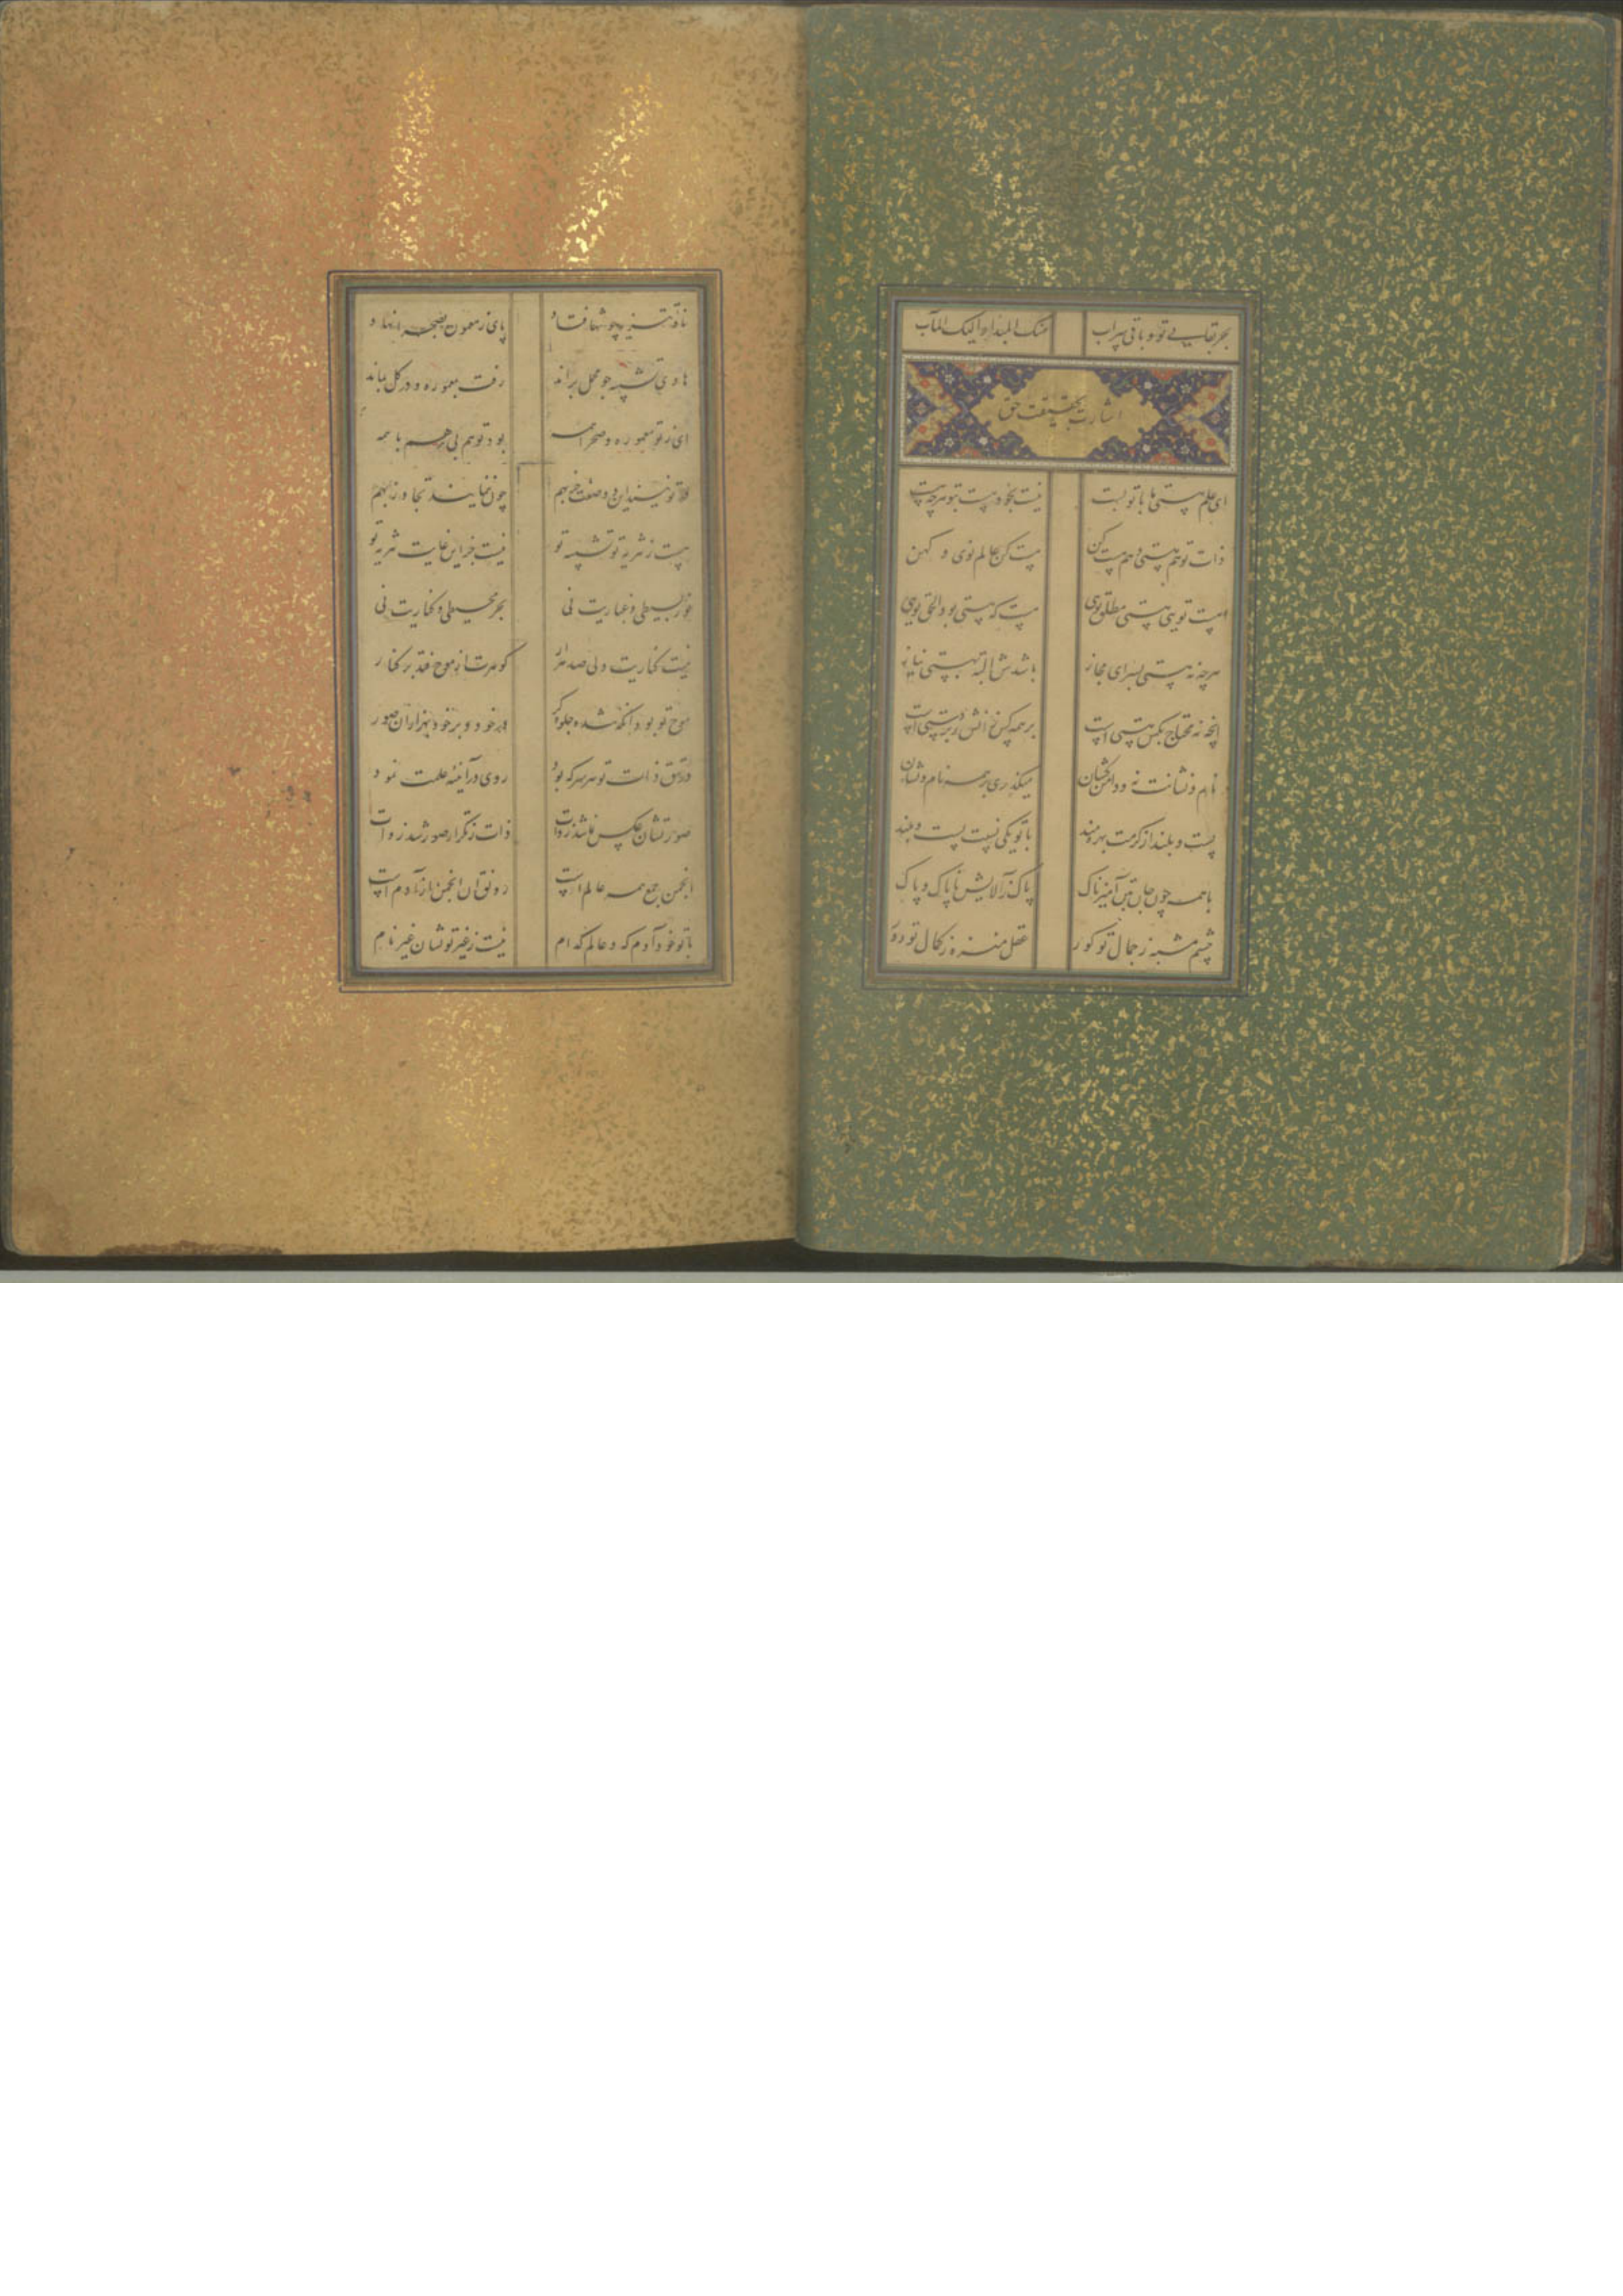 بحر بقایی تو و باقی سراب منک المبداء و الیک المآب
اشارت بحقیقت حق
ای علم هستی ما با تو پست نیست بخود هست بتو هرچه هست
ذات تو هم هستی و هم هست کن هست کن عالم نوی و کهن
هست تویی هستی مطلق تویی هست که هستی بود الحق تویی
هرچه نه هستی بسرای مجاز باشدش البته بهستی نیاز
آنچه نه محتاج بکس هستی است بر همه کس
نام و نشانت نه و دامن کشان میگذری بر همه نام و نشان
پست و بلند از کرمت بهره مند با تو یکی نسبت پست و بلند
با همه چون جان بتن آمیزناک پاک ز آلایش ناپاک و پاک
چشم مشبه ز جمال تو کور عقل منزه ز کمال تو دور
ناقه تنزیه چو شها فتاد پای ز معموره بصحرا نهاد
هادی تشبیه چو محمل براند رفت بمعموره و در گل بماند
ای ز تو معموره و صحرا همه بود تو هم بی همه هم با همه
تا تو نیفتد این دو صفت جمع بهم چون ننمایند تجاوز بهم
هست ز تنزیه تو تشبیه تو نیست جز این غایت تنزیه تو
نور بسیطی و غباریت نی بحر محیطی و کناریت نی
نیست کناریت ولی صد هزار گوهرت از موج فتد بر کنار
موج تو بود آنکه شده جلوه گر در خود و بر خود بهزاران صور
در تتق ذات تو هر سر که بود روی در آئینه علمت نمود
صورتشان عکس ذات ز تکرار صور شد ذوات
انجمن جمع همه عالم است رونق آن انجمن از آدم است
با تو خود آدم که و عالم کدام نیست ز غیر تو نشان غیر نام